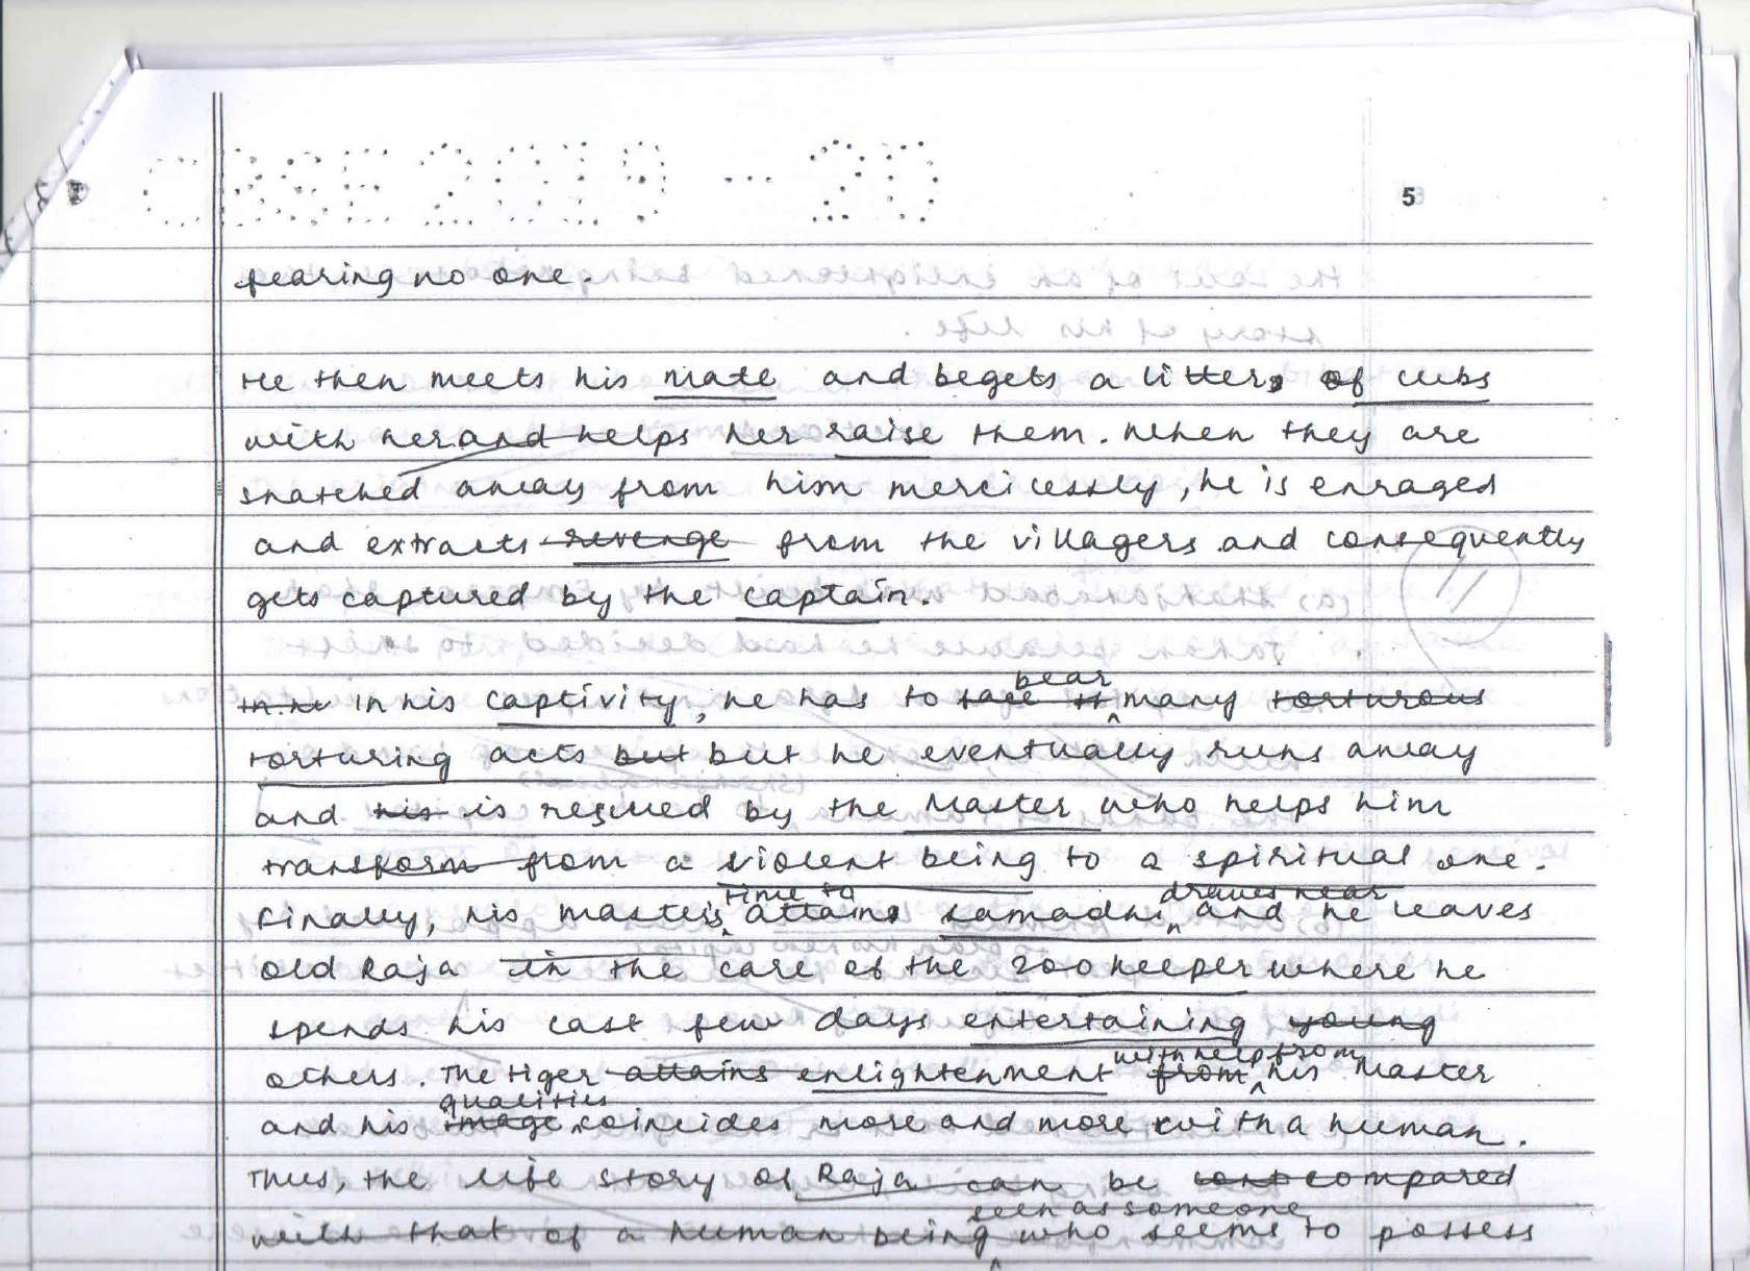 CBSE 2019 - 20
5
fearing no one.
He then meets his mate and begets a litter of cubs
with her and helps her raise them. When they are
snatched away from him mercilessly, he is enraged
and extracts revenge from the villagers and consequently
gets captured by the captain.
In his captivity, he has to bear many torturous
torturing acts but but he eventually runs away
and his is rescued by the Master who helps him
transform from a violent being to a spiritual one.
Finally, his master's time to attain samadhi draws near and he leaves
old Raja in the care of the zoo keeper where he
spends his last few days entertaining young
others. The tiger attains enlightenment from with help from his Master
and his image qualities coincides more and more with a human.
Thus, the life story of Raja can be compared
with that of a human being seen as someone who seems to possess